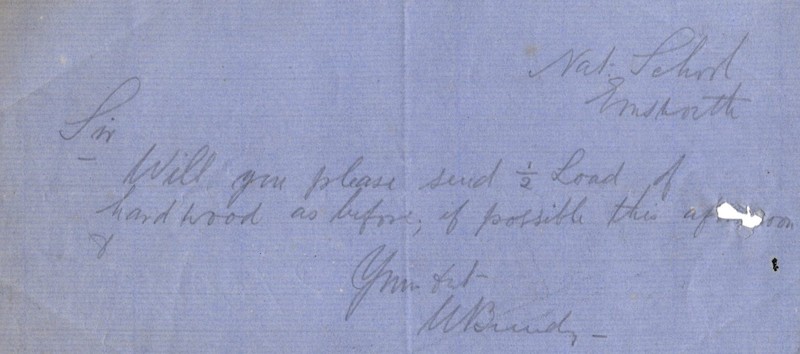 Nat. School
Emsworth
Sir
Will you please send ½ Load of
hardwood as before, if possible this af oon
&
Yours &c